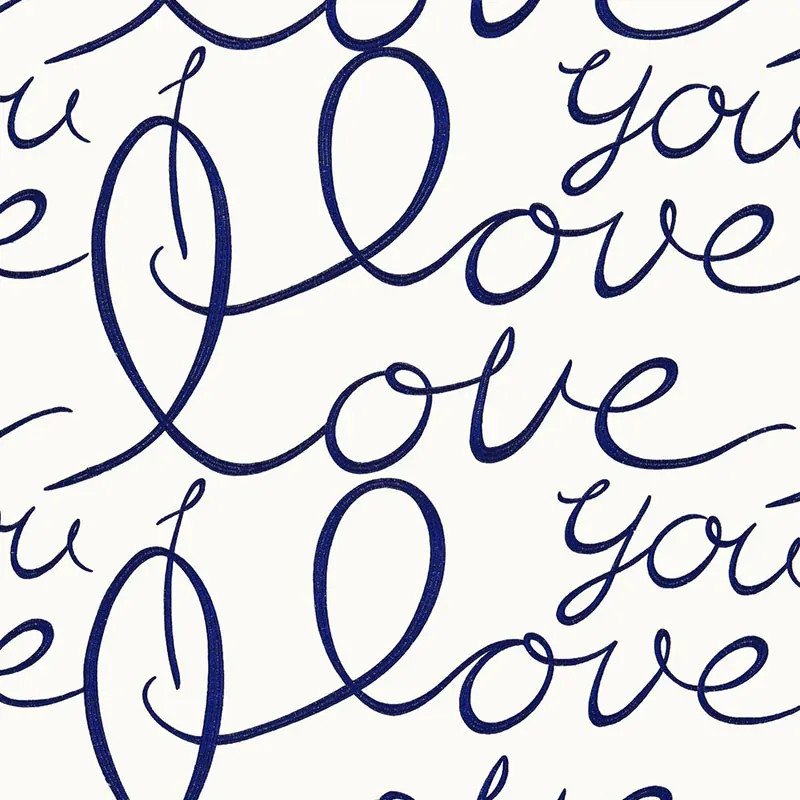 love
I love you
love
I love you